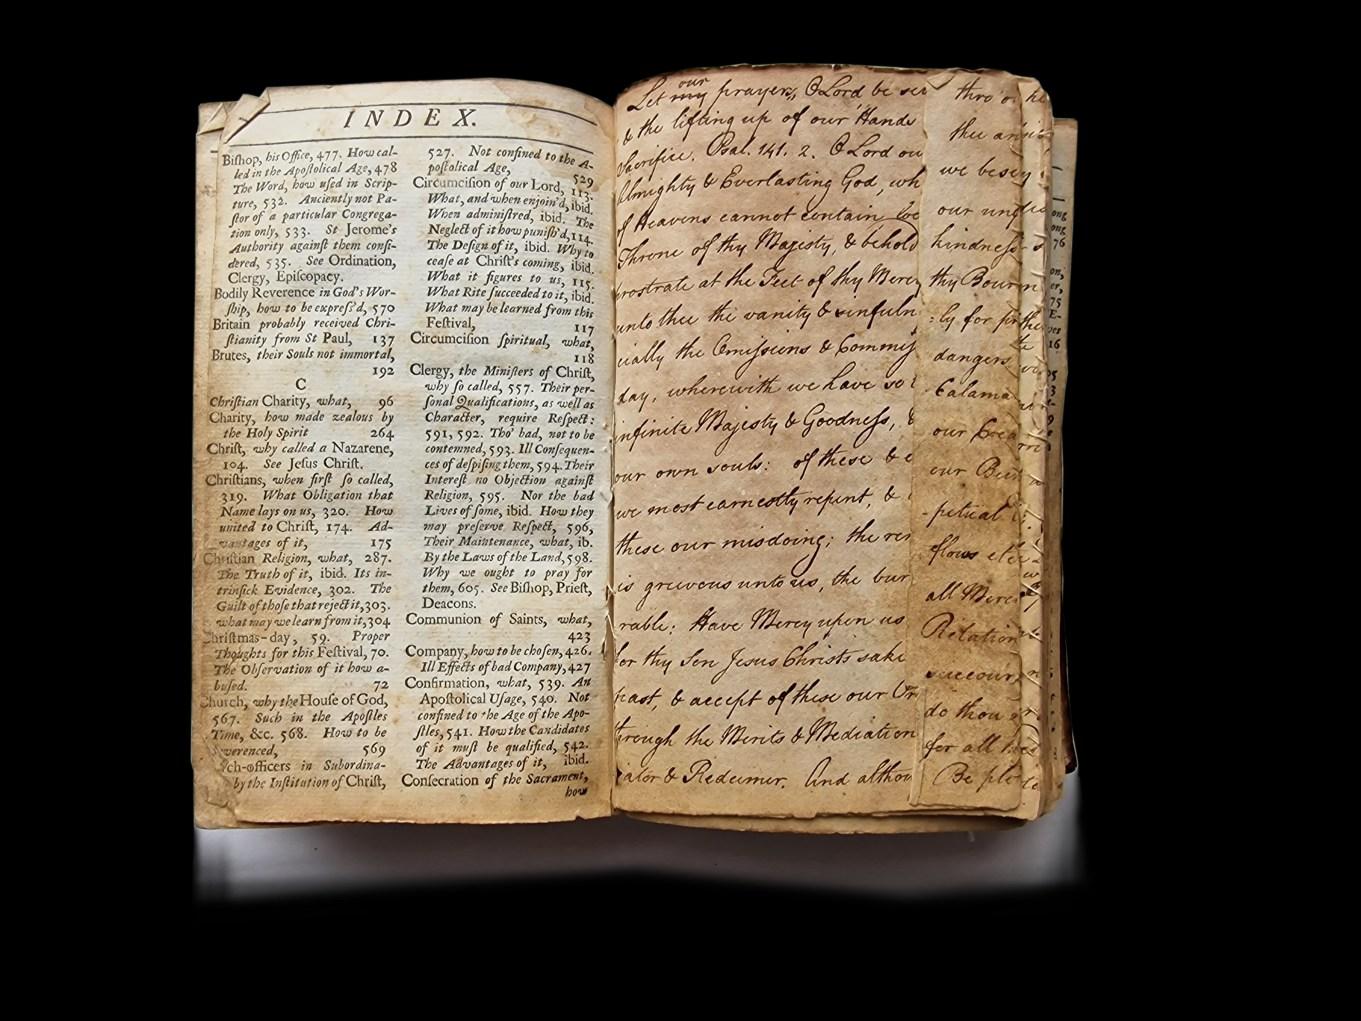 INDEX.
Bishop, his Office, 477. How cal-
led in the Apostolical Age, 478
The Word, how used in Scrip-
ture, 532. Anciently not Pa-
stor of a particular Congrega-
tion only, 533. St Jerome's
Authority against them consi-
dered, 535. See Ordination,
Clergy, Episcopacy.
Bodily Reverence in God's Wor-
ship, how to be express'd, 570
Britain probably received Chri-
stianity from St Paul, 137
Brutes, their Souls not immortal,
192
C
Christian Charity, what, 96
Charity, how made zealous by
the Holy Spirit 264
Christ, why called a Nazarene,
104. See Jesus Christ.
Christians, when first so called,
319. What Obligation that
Name lays on us, 320. How
united to Christ, 174. Ad-
vantages of it, 175
Christian Religion, what, 287.
The Truth of it, ibid. Its in-
trinsick Evidence, 302. The
Guilt of those that reject it, 303.
what may we learn from it, 304
Christmas-day, 59. Proper
Thoughts for this Festival, 70.
The Observation of it how a-
bused. 72
Church, why the House of God,
567. Such in the Apostles
Time, &c. 568. How to be
reverenced, 569
ch-officers in Subordina-
by the Institution of Christ,
527. Not confined to the A-
postolical Age, 529
Circumcision of our Lord, 113.
What, and when enjoin'd, ibid.
When administred, ibid. The
Neglect of it how punish'd, 114.
The Design of it, ibid. Why to
cease at Christ's coming, ibid.
What it figures to us, 115.
What Rite succeeded to it, ibid.
What may be learned from this
Festival, 117
Circumcision spiritual, what,
118
Clergy, the Ministers of Christ,
why so called, 557. Their per-
sonal Qualifications, as well as
Character, require Respect:
591, 592. Tho' bad, not to be
contemned, 593. Ill Consequen-
ces of despising them, 594. Their
Interest no Objection against
Religion, 595. Nor the bad
Lives of some, ibid. How they
may preserve Respect, 596,
Their Maintenance, what, ib.
By the Laws of the Land, 598.
Why we ought to pray for
them, 605. See Bishop, Priest,
Deacons.
Communion of Saints, what,
423
Company, how to be chosen, 426.
Ill Effects of bad Company, 427
Confirmation, what, 539. An
Apostolical Usage, 540. Not
confined to the Age of the Apo-
stles, 541. How the Candidates
of it must be qualified, 542.
The Advantages of it, ibid.
Consecration of the Sacrament,
how
our
Let my prayers, O Lord be
& the lifting up of our Hands
Sacrifice. Psal. 141. 2. O Lord
Almighty & Everlasting God,
of Heavens cannot contain
Throne of thy Majesty, & behold
prostrate at the Feet of thy Mercy
unto thee the vanity &
cially the Omissions &
day, wherewith we have so
infinite Majesty & Goodness,
our own souls: of these &
we most earnestly repent, &
these our misdoing; the
is grievous unto us, the
rable: Have Mercy upon us
for thy Son Jesus Christs sake
past, & accept of these our
through the Merits & Mediation
iator & Redeemer. And
thro'
thee
we
our
kindness
thy
:ly for
dangers
Calama
our
our
-petual
flows
all
Relation
succour
do thou
for all
Be